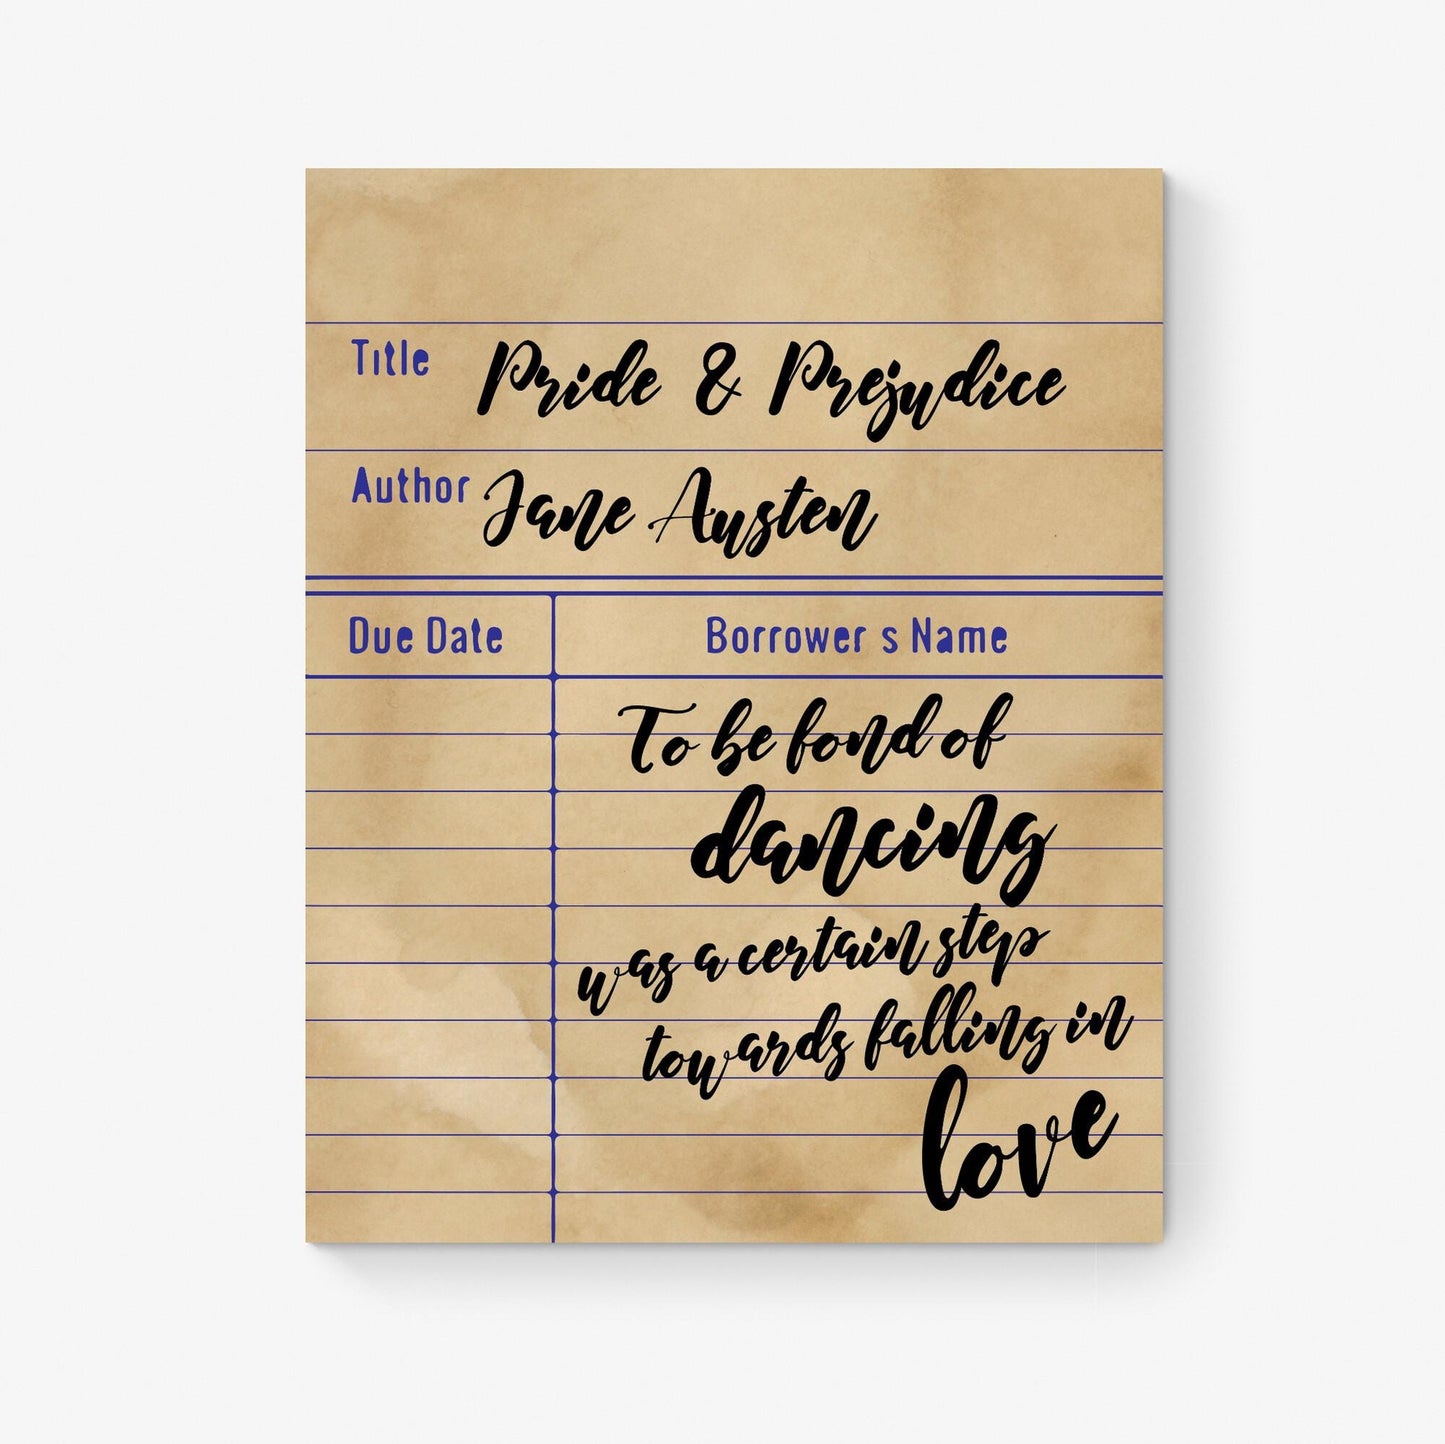 Title Pride & Prejudice
Author Jane Austen
Due Date Borrower s Name
To be fond of
dancing
was a certain step
towards falling in
love